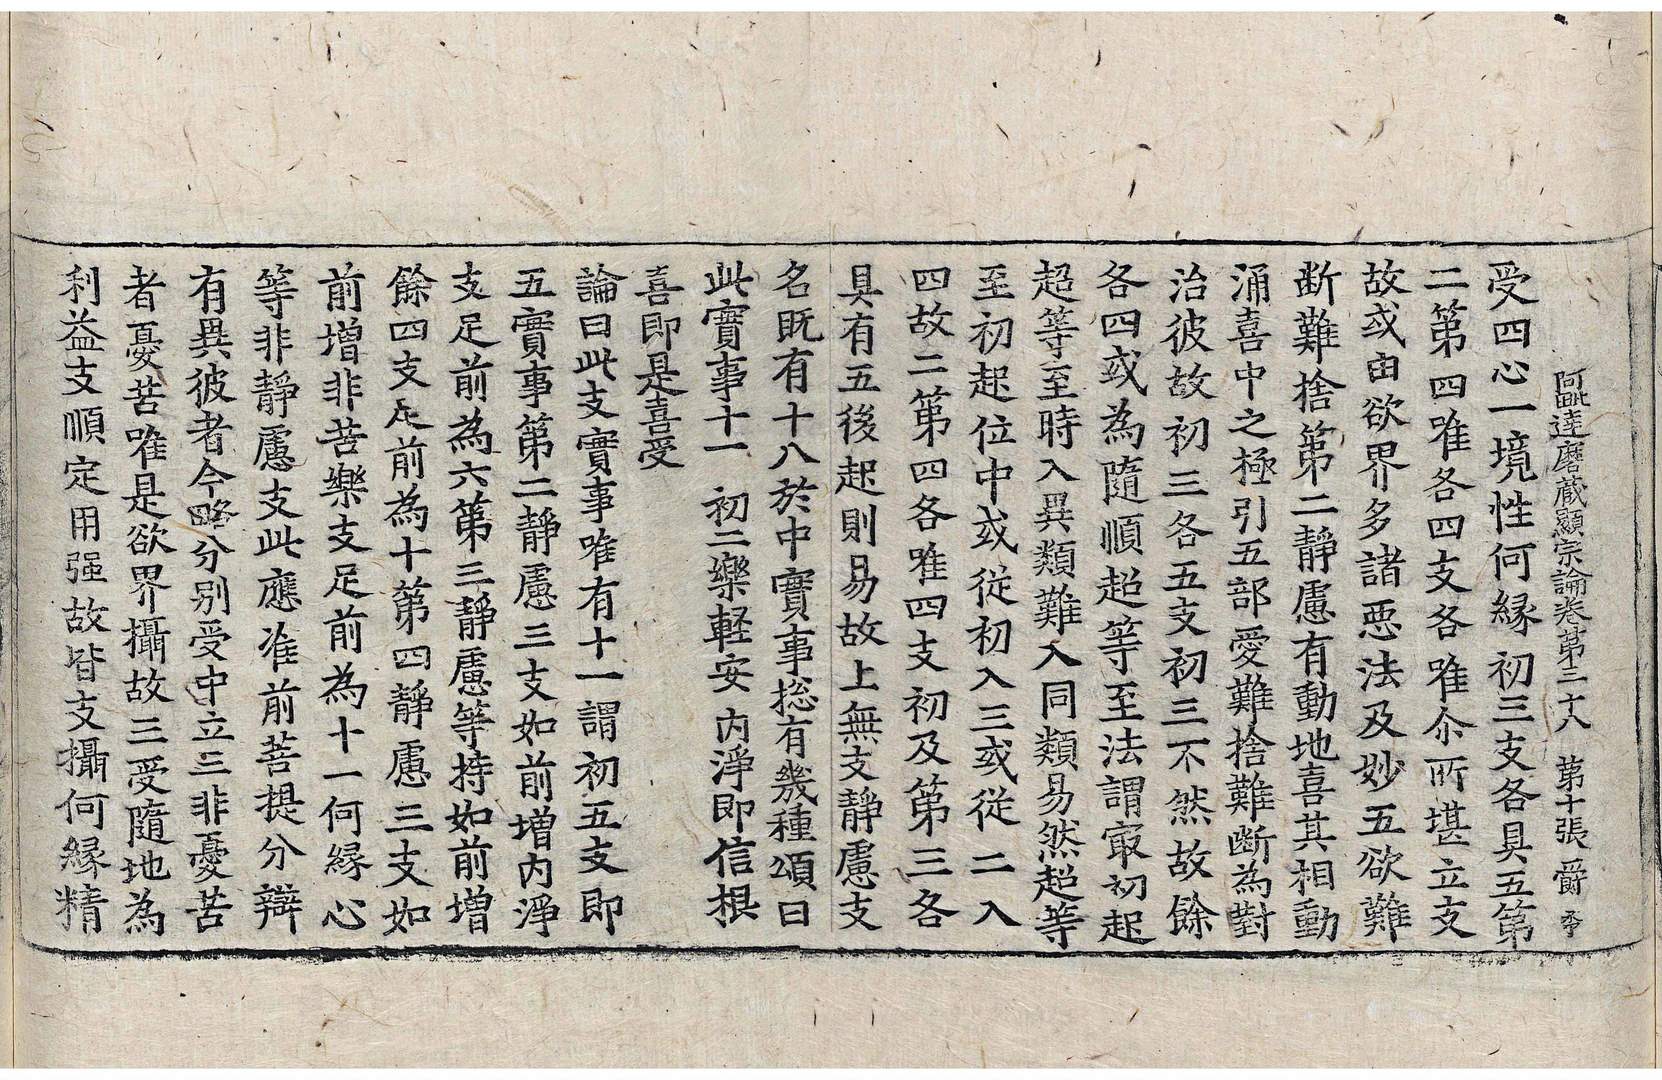 阿毗達磨蔵顯宗論卷第三十八 第十張 爵 季
受四心一境性何縁初三支各具五第
二第四唯各四支各唯尒所堪立支
故或由欲界多諸惡法及妙五欲難
断難捨第二静慮有動地喜其相動
涌喜中之極引五部愛難捨難断為對
治彼故初三各五支初三不然故餘
各四或為隨順超等至法謂㝡初起
超等至時入異類難入同類易然超等
至初起位中或從初入三或從二入
四故二第四各唯四支初及第三各
具有五後起則易故上無支静慮支
名既有十八於中實事捴有幾種頌曰
此實事十一 初二樂軽安 內淨即信根
喜即是喜受
論曰此支實事唯有十一謂初五支即
五實事第二静慮三支如前增內淨
支足前為六第三静慮等持如前增
餘四支足前為十第四静慮三支如
前增非苦樂支足前為十一何縁心
等非静慮支此應准前菩提分辯
有異彼者今略分别受中立三非憂苦
者憂苦唯是欲界攝故三受隨地為
利益支順定用强故皆支攝何縁精